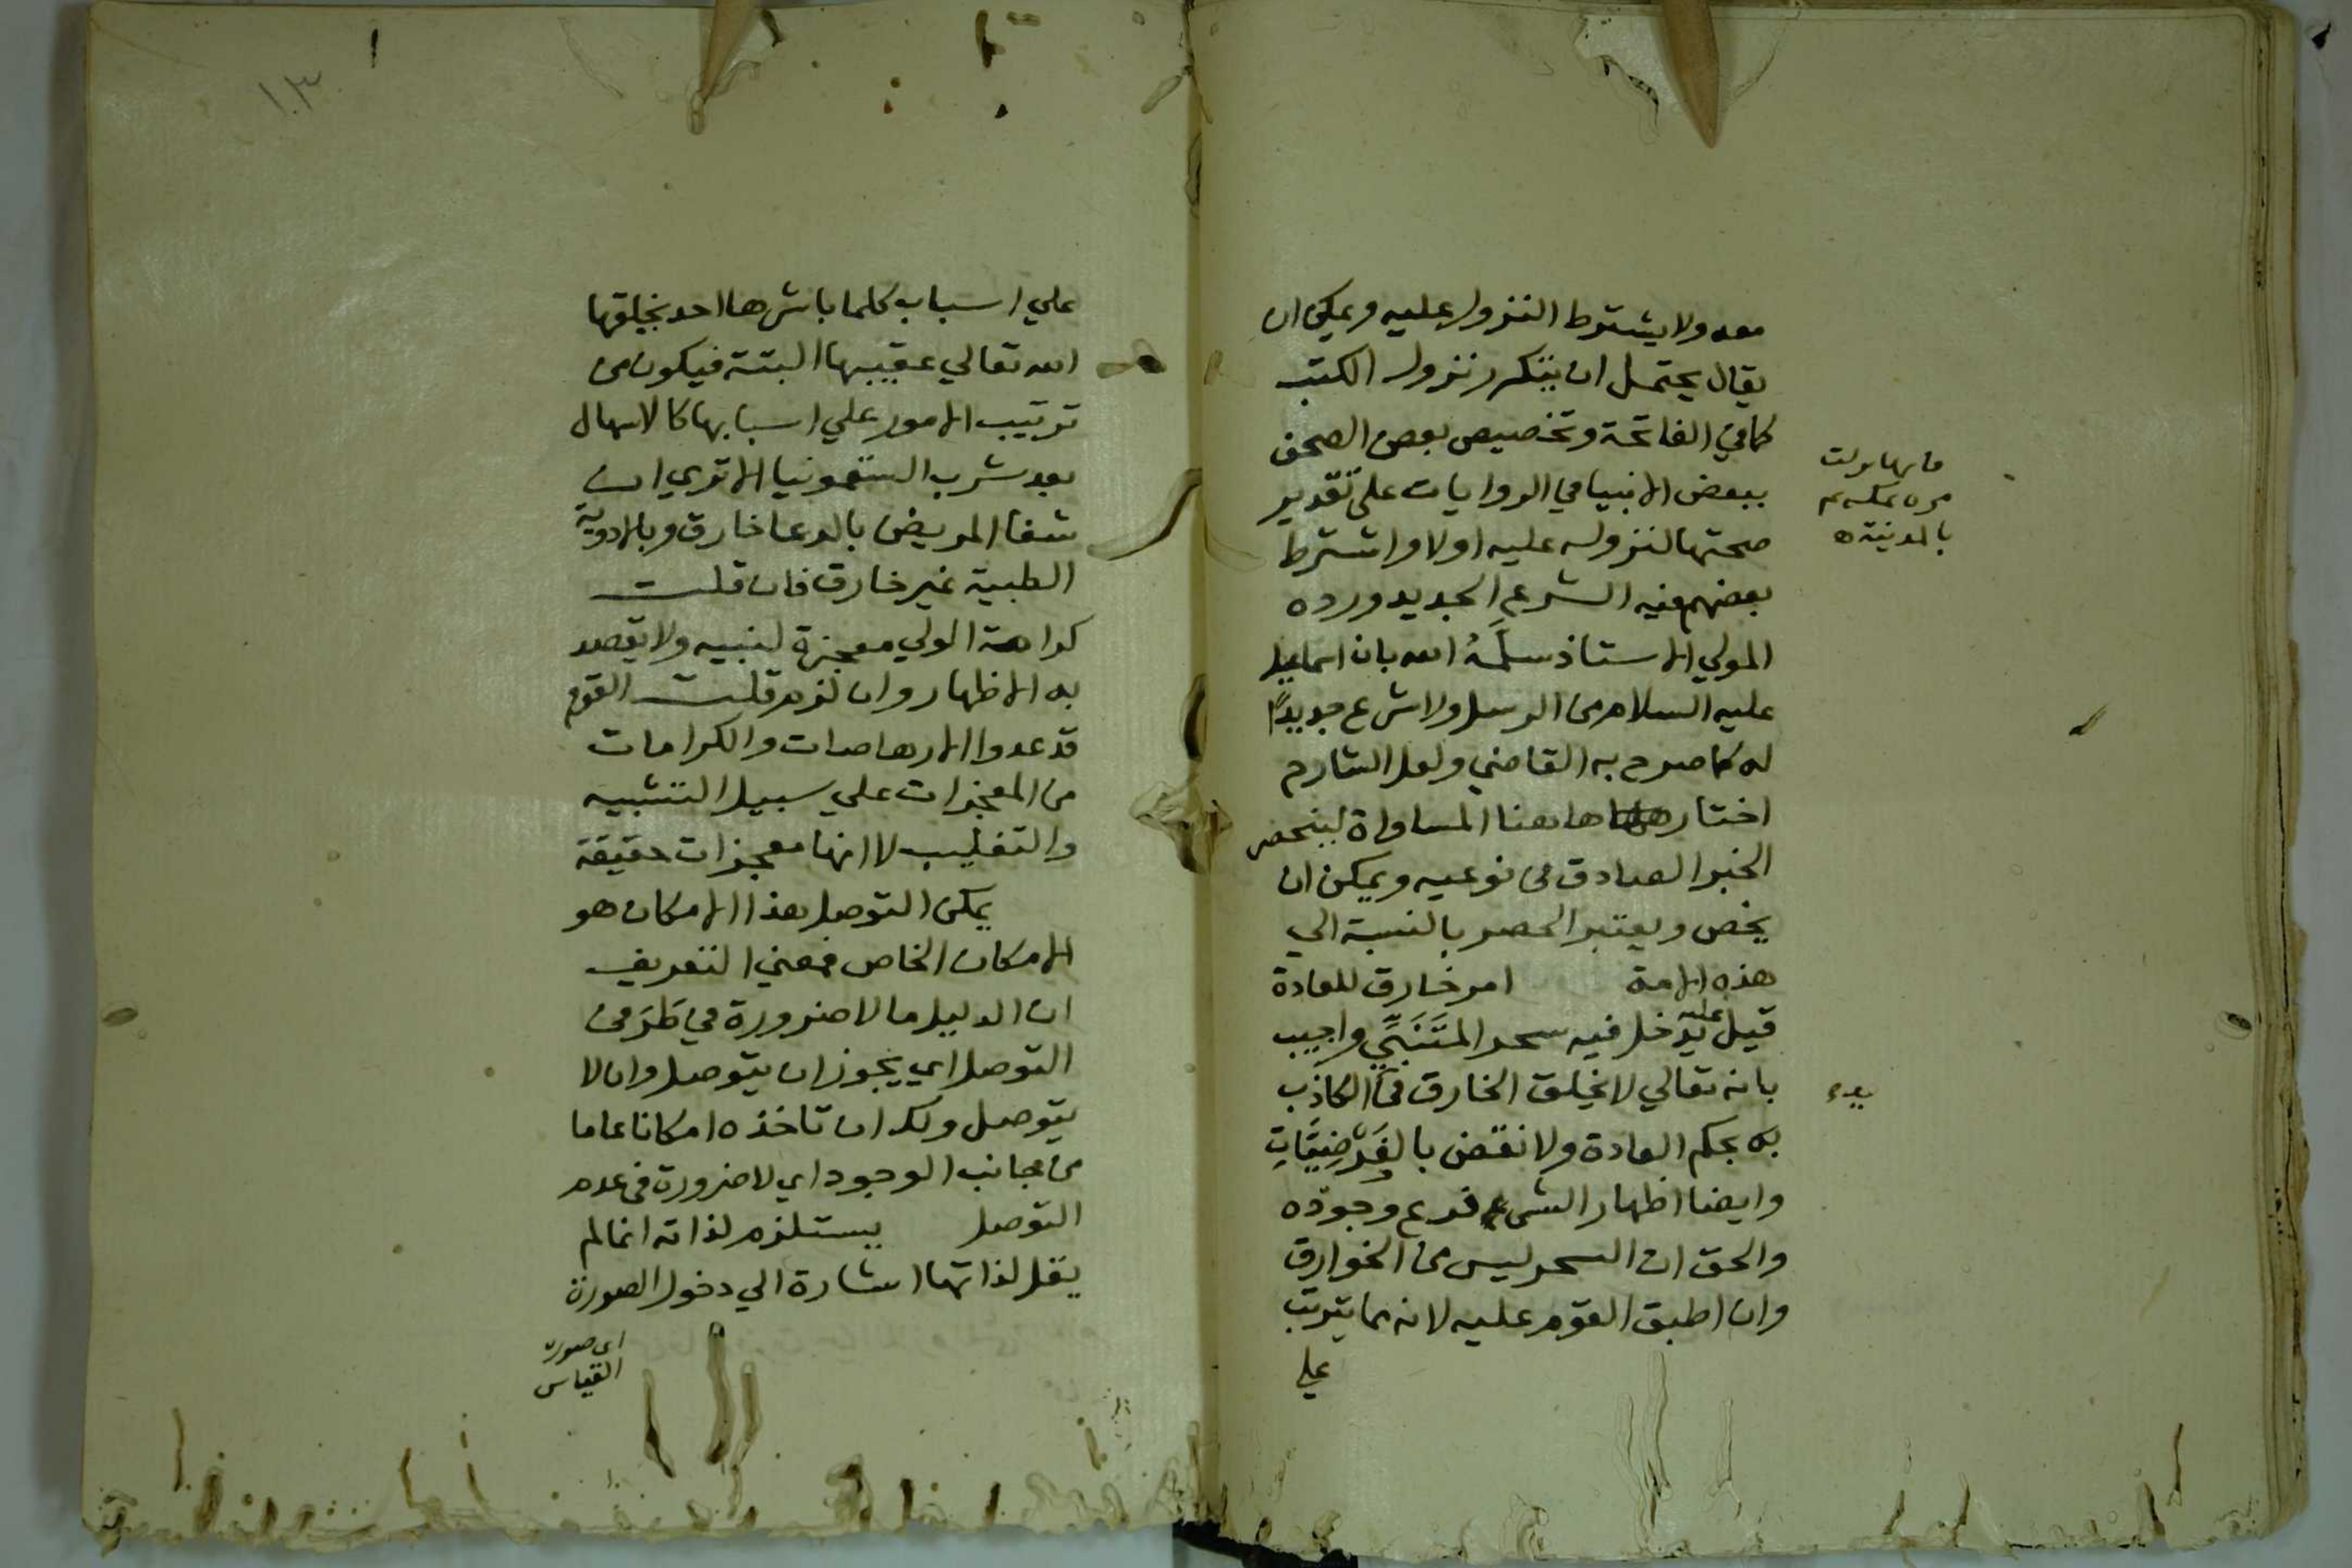 معه ولا يشترط النزول عليه ويمكن ان
يقال يحتمل ان يتكرر نزول الكتب
كما في الفاتحة وتخصيص بعض الصحف
ببعض الانبيا في الروايات على تقدير
صحتها لنزوله عليه اولا واشترط
بعضهم فيه الشرع الجديد ورده
المولي الاستاذ سلمه الله بان اسماعيل
عليه السلام من الرسل ولا شرع جديدًا
له كما صرح به القاضي ولعل الشارح
اختار هاهنا المساواة لينحصر
الخبر الصادق في نوعيه ويمكن ان
يخص ويعتبر الحصر بالنسبة الي
هذه الامة امر خارق للعادة
قيل عليه يدخل فيه سحر المتنبي واجيب
بانه تعالي لا يخلق الخارق في الكاذب
به بحكم العادة ولا نقض بالفرضيات
وايضا اظهار الشيء فرع وجوده
والحق ان السحر ليس من الخوارق
وان اطبق القوم عليه لانه مما يترتب
علي
فانها نزلت
مرة بمكة ثم
بالمدينة
يده
١٠٣
علي اسباب كلما باشرها احد بخلقها
الله تعالي عقيبها البتة فيكون من
ترتيب الامور علي اسبابها كالاسهال
بعد شرب السقمونيا الا تري ان
شفا المريض بالدعا خارق وبالادوية
الطبية غير خارق فان قلت
كرامة الولي معجزة لنبيه ولا يقصد
به الاظهار وان لزم قلت القوم
قد عدوا الارهاصات والكرامات
من المعجزات علي سبيل التشبيه
والتغليب لا انها معجزات حقيقة
يمكن التوصل هذا الامكان هو
الامكان الخاص فمعني التعريف
ان الدليل ما لا ضرورة في طرفي
التوصل اي يجوز ان يتوصل وان لا
يتوصل ولك ان تاخذه امكانا عاما
من جانب الوجود اي لا ضرورة في عدم
التوصل يستلزم لذاته انما لم
يقل لذاتها اشارة الي دخول الصورة
اي صورة
القياس